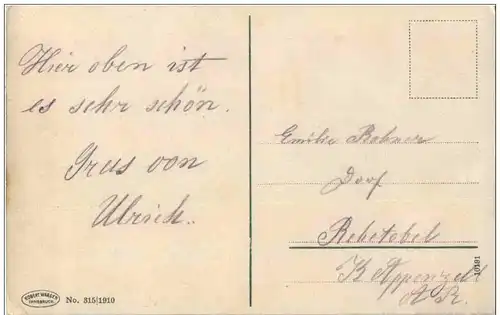 Hier oben ist
es sehr schön.
Grus von
Ulrich.
Emilie Bohner
Dorf
Rehetobel
K Appenzell
A. R.
10191
ROBERT WARGER
INNSBRUCK
No. 315|1910